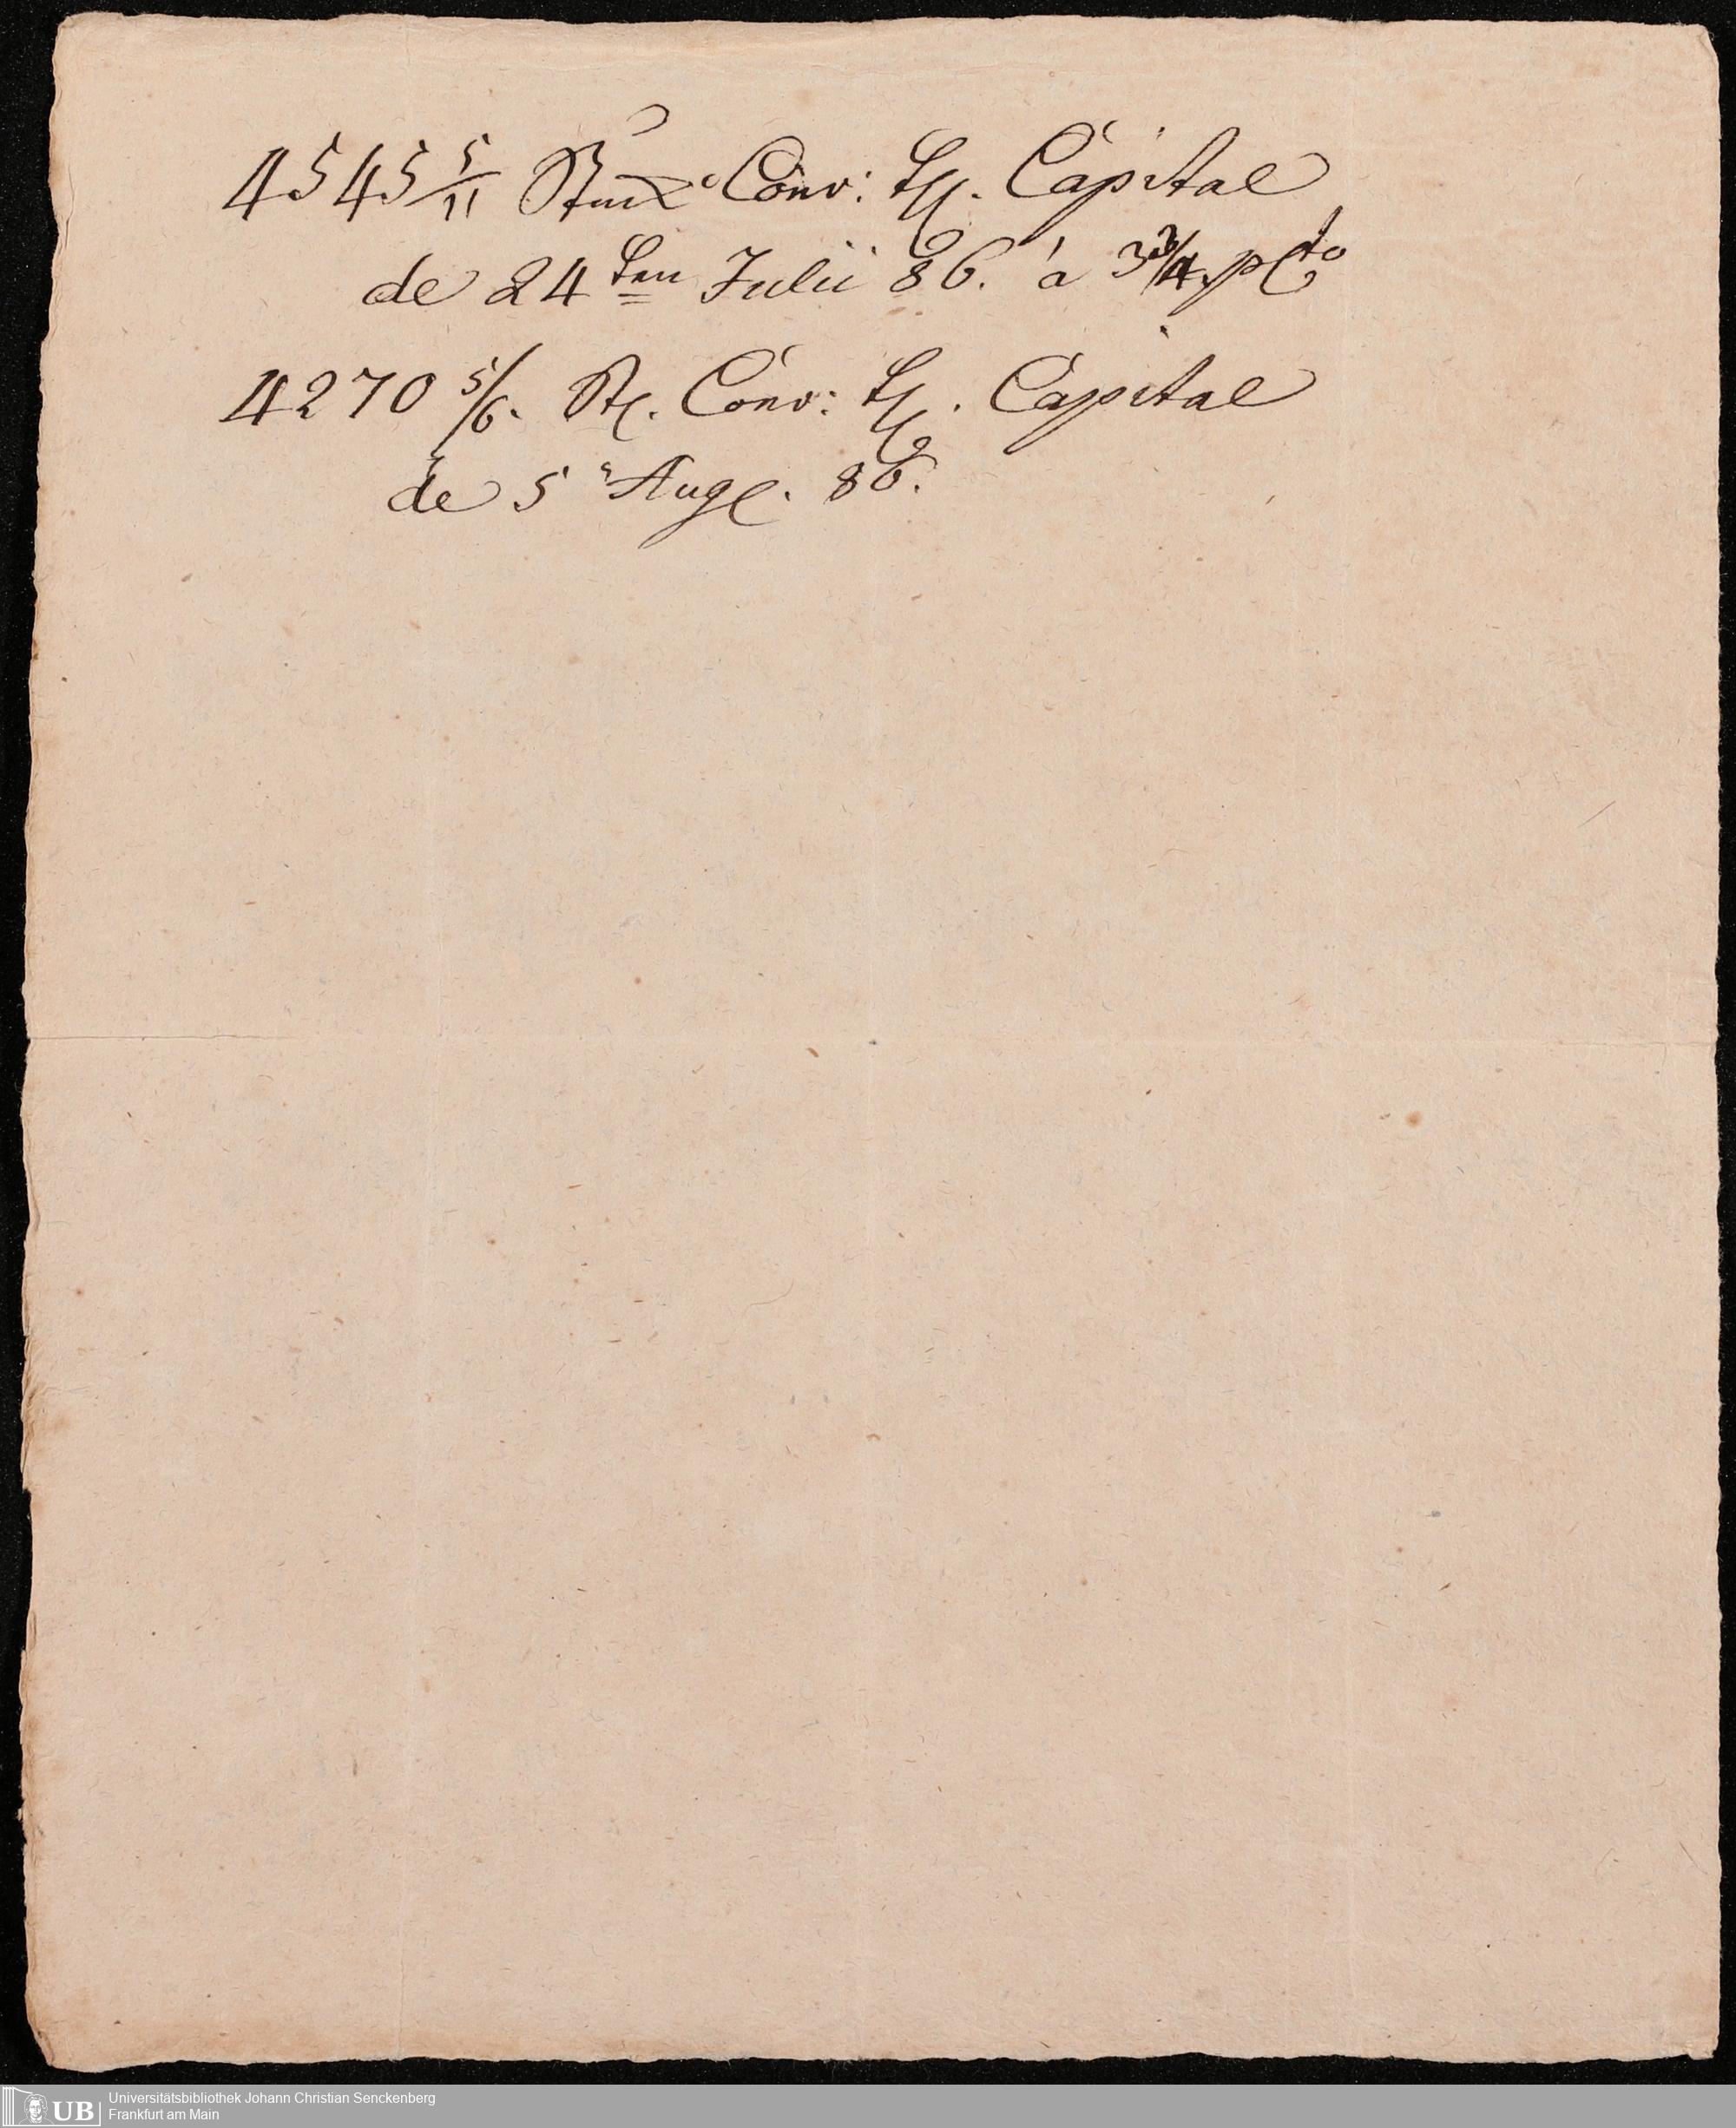 4545 5/11 Stück Conv: Th. Capital
de 24ten Julii 86. à 3 3/4 pCto
4270 5/6. St. Conv: Th. Capital
de 5 Aug. 86.
UB
Universitätsbibliothek Johann Christian Senckenberg
Frankfurt am Main